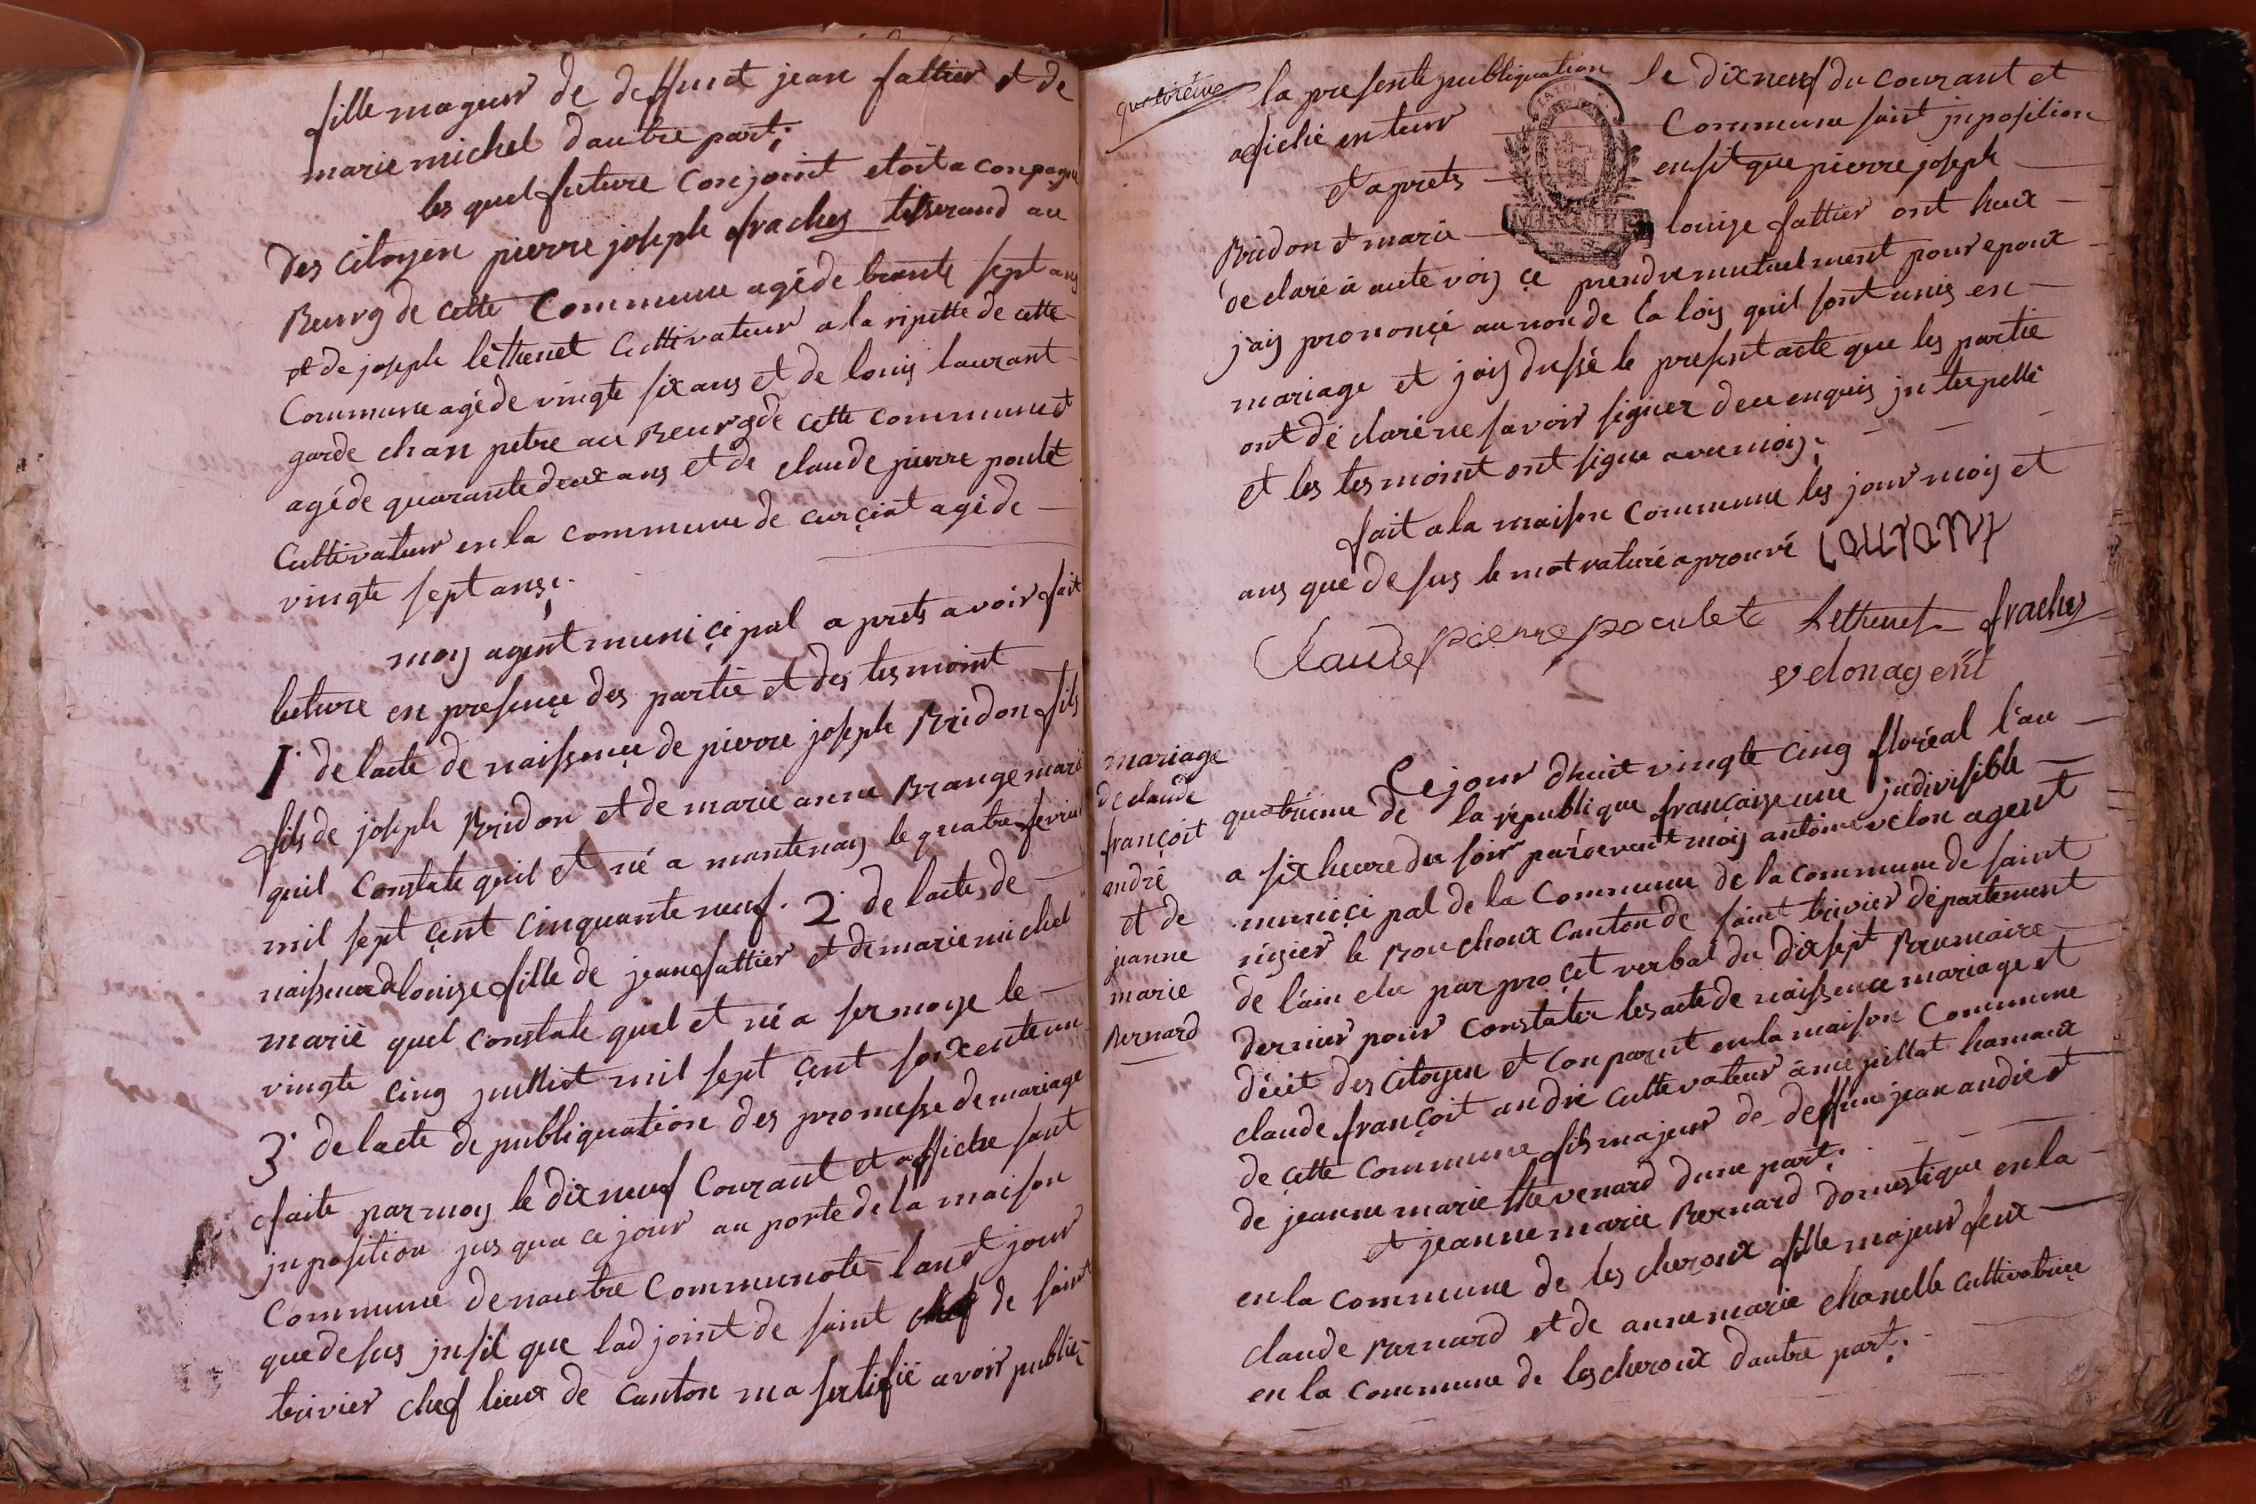 fille mageur de deffunt jean fattier et de
marie michel dautre part;
les quel future conjoint etoit a conpagné
des citoyen pierre joseph frachey tisserand au
Beurg de cette Commune agé de trante sept ans
et de joseph lèthenet Cultivateur a la ripette de cette
Commune agé de vingte six ans et de louis laurant
garde chan petre au Beurg de cette commune et
agé de quarante deux ans et de claude pierre poulet
Cultivateur en la commune de curçiat agé de
vingte sept ans;
moy agent muniçipal a prets avoir fait
lecture en presençe des partie et des tesmoint
1° de lacte de naissençe de pierre joseph Bridon fils
fils de joseph Bridon et de marie anne Brange marié
quil Constate quil et né a mantenay le quatre fevrié
mil sept çent cinquante neuf. 2° de lacte de
naissence de louize fille de jean fattier et de marie michel
marié quel constate quel et né a sermoye le
vingte cinq juilliet mil sept çent soixente un
3° de lacte de publiquation des promesse de mariage
faite par moy le dix neuf Courant et affiche sant
jnposition jus qua ce jour au porte de la maison
Commune de nautre Communote lan et jour
que de sus jnsil que lad joint de saint chef de saint
trivier chef lieux de Canton ma sertifié avoir publié
quatoreme
la presente publiquation le dix neuf du courant et
afiché en teur Commune sant jnposition
et a prets ensit que pierre joseph
Bridon et marie louize fattier ont heux
de claré à aute voiy ce prendre mutuelment pour epoux
jaiy prononçé au non de la loiy quil sont unis en
mariage et jaiy dressé le present acte que les partie
ont dé claré ne savoir signer de ce enquis jnterpellé
et les tesmoint ont signe avec moiy;
fait a la maison Commune les jour moiy et
ans que de sus le mot raturé aprouvé Laurant
Claude pierre poculet Lethenet frachey
velon agent
mariage
de claude
françoit
andré
et de
jeanne
marie
Bernard
Ce jour dhuit vingte cinq floréal l'an
quatrieme de la république française une jndivisible
a six heure du soir pardevant moiy antoine velon agent
muniçipal de la Commune de la commune de saint
nizier le Bouchoux Canton de saint trivier département
de l'ain élu par proçet verbal du dix sept Brumaire
dernier pour constater les acte de naissence mariage et
décit des citoyen et conparut en la maison Commune
claude françoit andré cultivateur à mé pillat hamaux
de cette Commune fils majeur de deffun jean andré et
de jeanne marie thevenard dune part;
et jeanne marie Bernard domestique en la
en la commune de les cheroux fille majeur feux
claude Bernard et de anne marie chanelle cultivatriçe
en la commune de les cheroux dautre part;